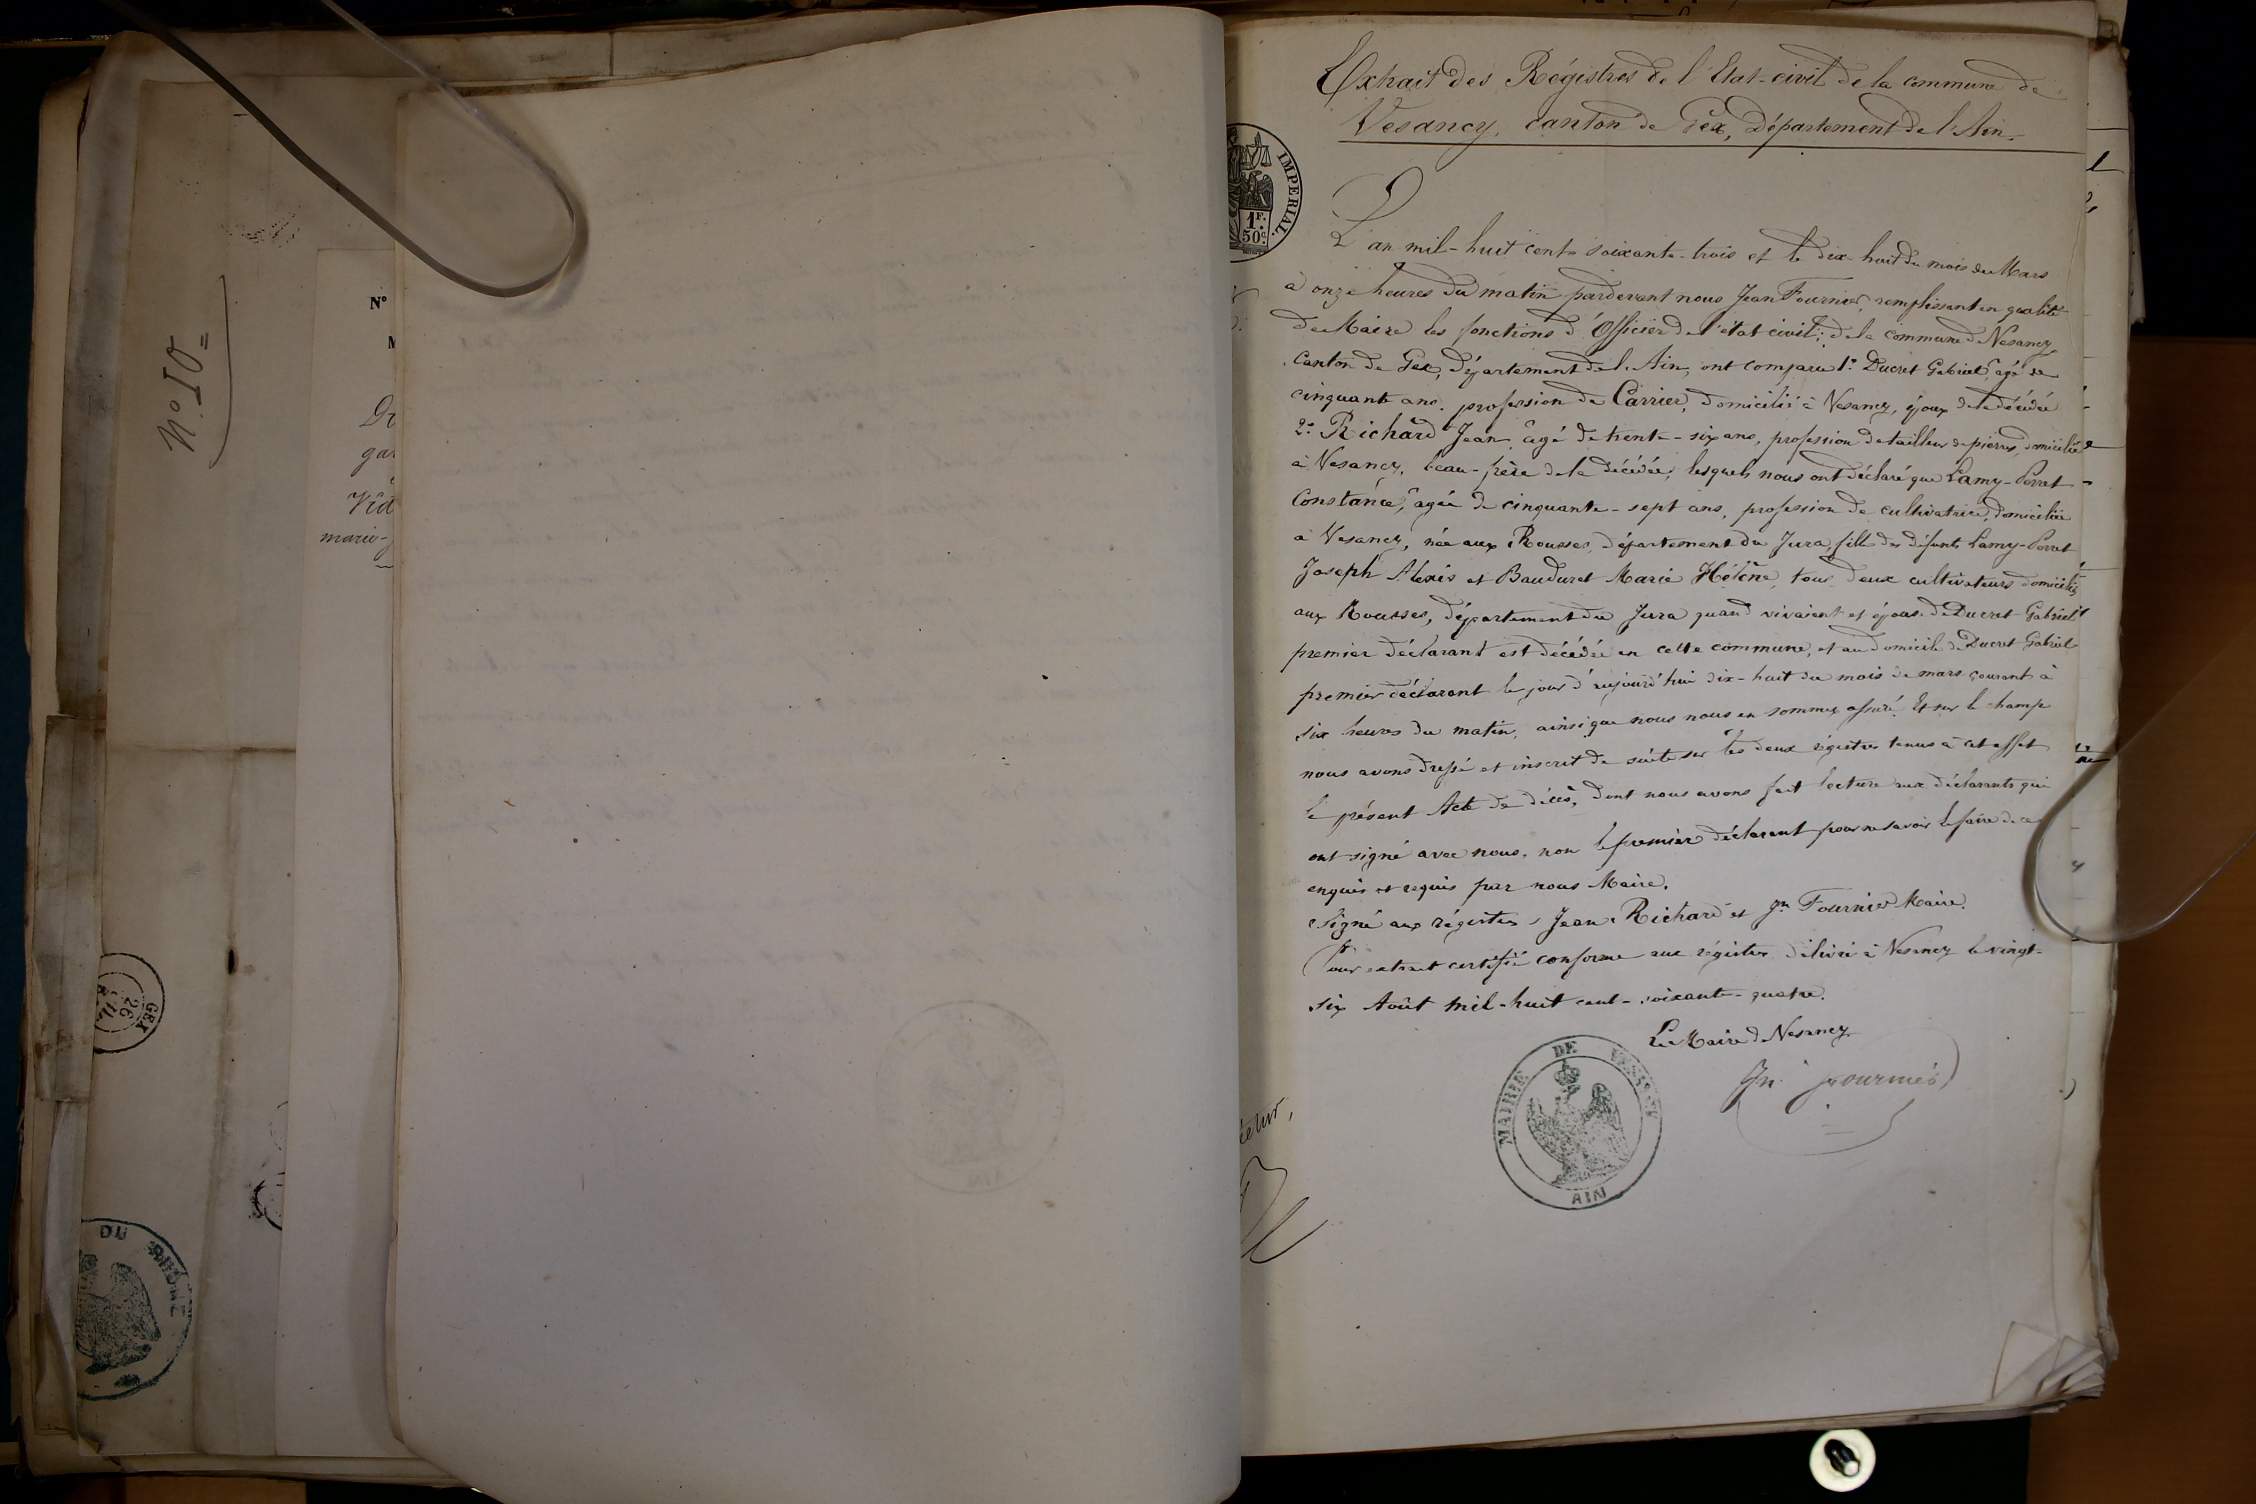 N°. 10=
N°
M
Do
gar
Vict
marie-j
GEX
26
DU RHÔNE
Extrait des Régistres de l'Etat-civil de la commune de
Vesancy, canton de Gex, Département de l'Ain.
IMPERIAL.
1F.
50c.
L'an mil-huit cent soixante-trois et le dix-huit du mois de Mars
à onze heures du matin pardevant nous Jean Fournier, remplissant en qualité
de Maire les fonctions d'Officier de l'état civil; de la commune de Vesancy
Canton de Gex, département de l'Ain, ont comparu 1° Ducret Gabriel, âgé de
cinquante ans. profession de Carrier, domicilié à Vesancy, époux de la décédée
2° Richard Jean, âgé de trente-six ans, profession de tailleur de pierres, domicilié
à Vesancy, beau-frère de la décédée, lesquels nous ont déclaré que Lamy-Perret
Constance, âgée de cinquante-sept ans, profession de cultivatrice, domiciliée
à Vesancy, née aux Rousses, département du Jura, fille des défunts Lamy-Perret
Joseph Alexis et Bauduret Marie Hélène, tous deux cultivateurs domiciliés
aux Rousses, département du Jura quand vivaient et épouse de Ducret Gabriel
premier déclarant est décédée en cette commune, et au domicile de Ducret Gabriel
premier déclarant le jour d'aujourd'hui dix-huit du mois de mars courant à
six heures du matin, ainsi que nous nous en sommes assuré. Et sur le champ
nous avons dressé et inscrit de suite sur les deux régistres tenus à cet effet
le présent Acte de décès, dont nous avons fait lecture aux déclarants qui
ont signé avec nous, non le premier déclarant pour ne savoir le faire de ce
enquis et requis par nous Maire.
Signé aux régistres Jean Richard et Jn Fournier Maire.
Pour extrait certifié conforme aux régistres délivré à Vesancy le vingt-
six Août mil-huit cent-soixante-quatre.
Le Maire de Vesancy
Jn. fournier
MAIRIE DE VESANCY
AIN